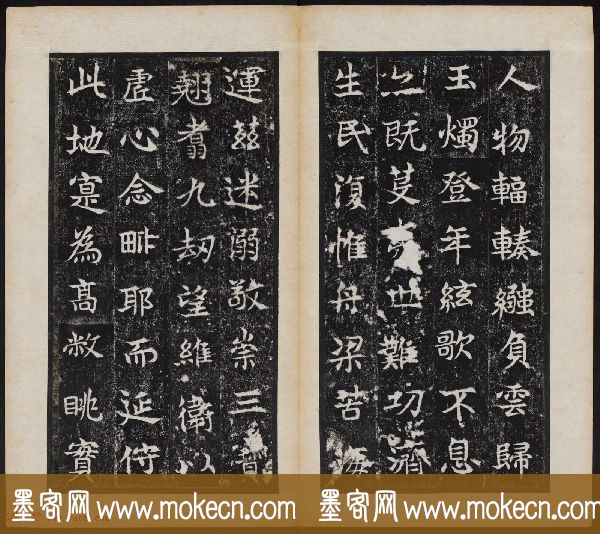 人物輻輳繦負雲歸
玉燭登年絃歌不息
亦既芟世難㓛濟
生民復惟舟梁苦海
運茲迷溺敬崇三寶
翹翥九刼望維衛以
虛心念毗耶而延佇
此地寔為高敞眺實
墨客网 www.mokecn.com 墨客网 www.mokecn.com